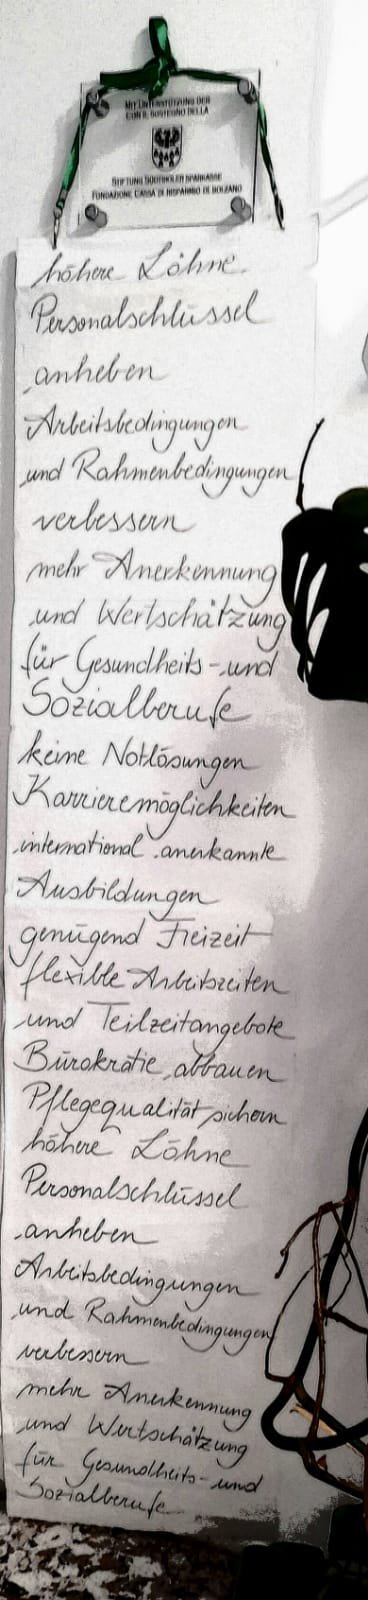 MIT UNTERSTÜTZUNG DER
CON IL SOSTEGNO DELLA
STIFTUNG SÜDTIROLER SPARKASSE
FONDAZIONE CASSA DI RISPARMIO DI BOLZANO
höhere Löhne
Personalschlüssel
anheben
Arbeitsbedingungen
und Rahmenbedingungen
verbessern
mehr Anerkennung
und Wertschätzung
für Gesundheits- und
Sozialberufe
keine Notlösungen
Karrieremöglichkeiten
international anerkannte
Ausbildungen
genügend Freizeit
flexible Arbeitszeiten
und Teilzeitangebote
Bürokratie abbauen
Pflegequalität sichern
höhere Löhne
Personalschlüssel
anheben
Arbeitsbedingungen
und Rahmenbedingungen
verbessern
mehr Anerkennung
und Wertschätzung
für Gesundheits- und
Sozialberufe